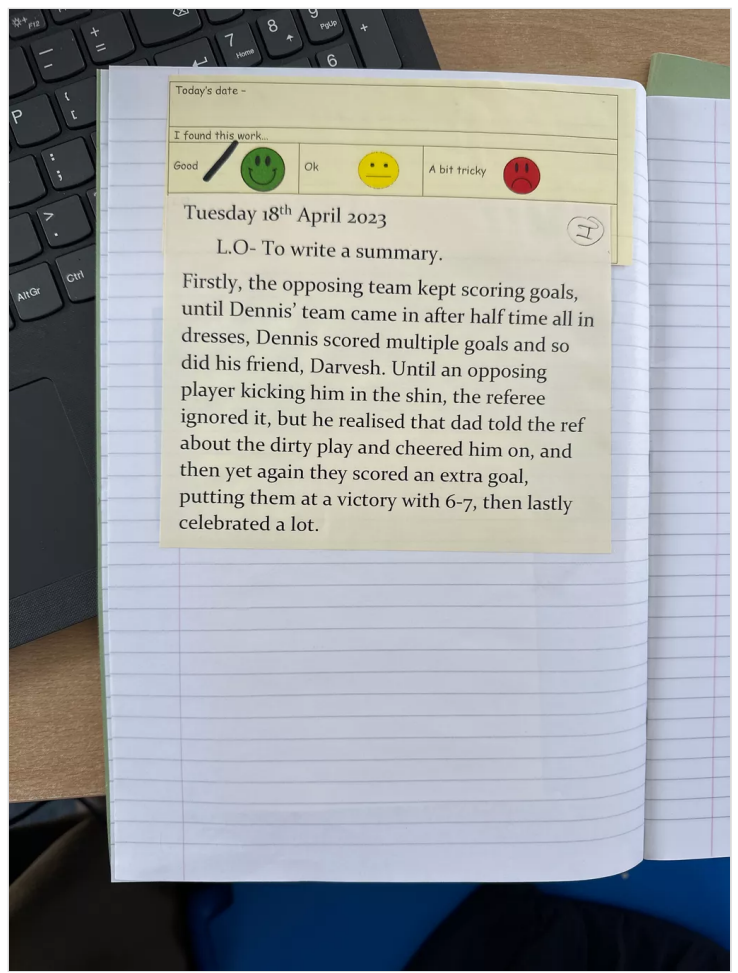 F12
+
=
P
{
[
:
;
>
.
AltGr
Ctrl
7
Home
8
9
PgUp
6
+
Today's date –
I found this work...
Good
Ok
A bit tricky
Tuesday 18th April 2023
I
L.O- To write a summary.
Firstly, the opposing team kept scoring goals,
until Dennis’ team came in after half time all in
dresses, Dennis scored multiple goals and so
did his friend, Darvesh. Until an opposing
player kicking him in the shin, the referee
ignored it, but he realised that dad told the ref
about the dirty play and cheered him on, and
then yet again they scored an extra goal,
putting them at a victory with 6-7, then lastly
celebrated a lot.